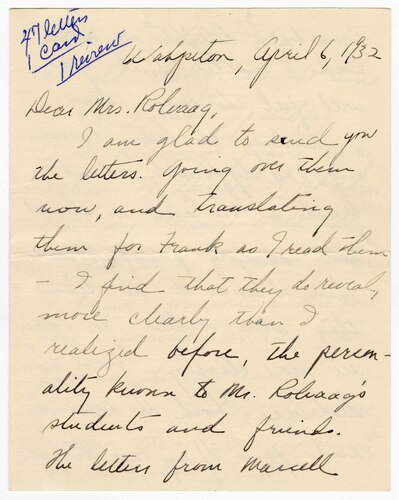 47 letters
1 card
1 review
Wahpeton, April 6, 1932
Dear Mrs. Rolvaag,
I am glad to send you
the letters. Going over them
now, and translating
them for Frank as I read them
- I find that they do reveal,
more clearly than I
realized before, the person-
ality known to Mr. Rolvaag's
students and friends.
The letters from Marcell